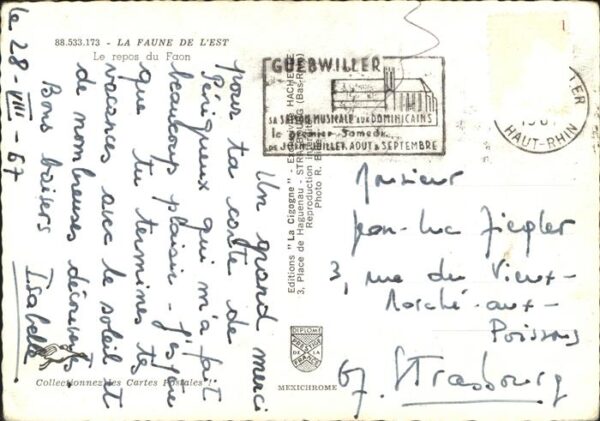 88.533.173 - LA FAUNE DE L'EST
Le repos du Faon
le 28-VIII-67
Un grand merci
pour ta carte de
Périgueux qui m'a fait
beaucoup plaisir - J'espère
que tu termines tes
vacances avec le soleil et
de nombreuses découvertes
Bons baisers
Isabelle
Collectionnez les Cartes Postales !
Editions "La Cigogne" - HACHETTE
3, Place de Haguenau - STRASBOURG (Bas-Rhin)
Reproduction
Photo R.
DIPLOME
PRESTIGE
DE LA
FRANCE
MEXICHROME
GUEBWILLER
SA SAISON MUSICALE AUX DOMINICAINS
le premier Samedi
DE JUIN JUILLET AOUT & SEPTEMBRE
HAUT-RHIN
Monsieur
Jean-Luc Ziegler
3, rue du Vieux-
Marché-aux-
Poissons
67. Strasbourg